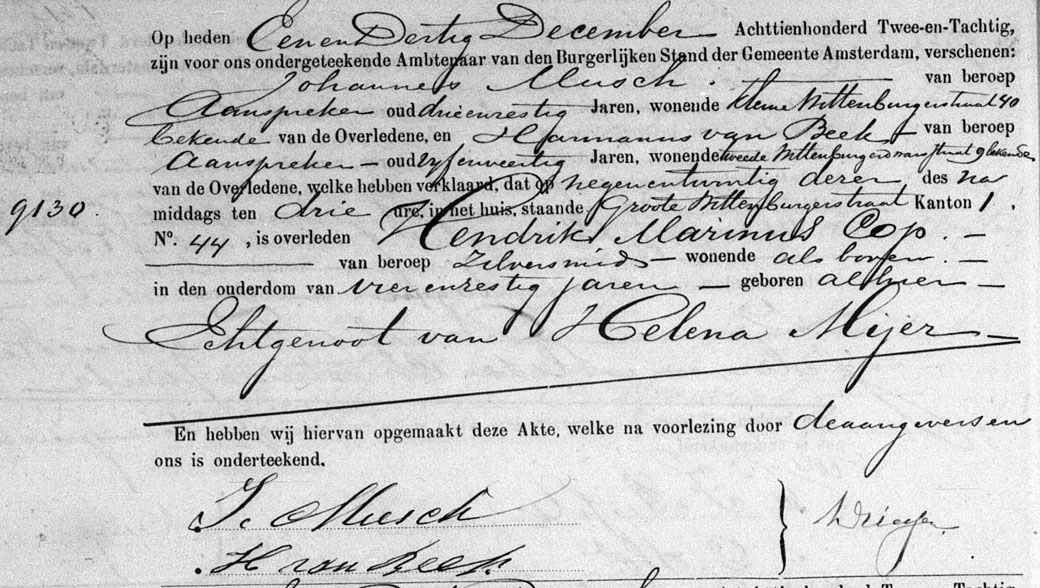 Op heden Een en Dertig December Achttienhonderd Twee-en-Tachtig,
zijn voor ons ondergeteekende Ambtenaar van den Burgerlijken Stand der Gemeente Amsterdam, verschenen:
Johannes Musch. van beroep
Aanspreker oud drieenzestig Jaren, wonende kleine Wittenburgerstraat 40
bekende van de Overledene, en Hermanus van Beek van beroep
Aanspreker oud vyfenveertig Jaren, wonende tweede Wittenburgerdwarsstraat 9 bekende
van de Overledene, welke hebben verklaard, dat op negenentwintig dezer des na
9130. middags ten drie ure, in het huis, staande Groote Wittenburgerstraat Kanton 1,
No. 44, is overleden Hendrik Marinus Cop.
van beroep Zilversmid wonende als boven.
in den ouderdom van vier en zestig jaren geboren alhier
Echtgenoot van Helena Mijer
En hebben wij hiervan opgemaakt deze Akte, welke na voorlezing door de aangevers en
ons is onderteekend.
J. Musch
H van Beek.